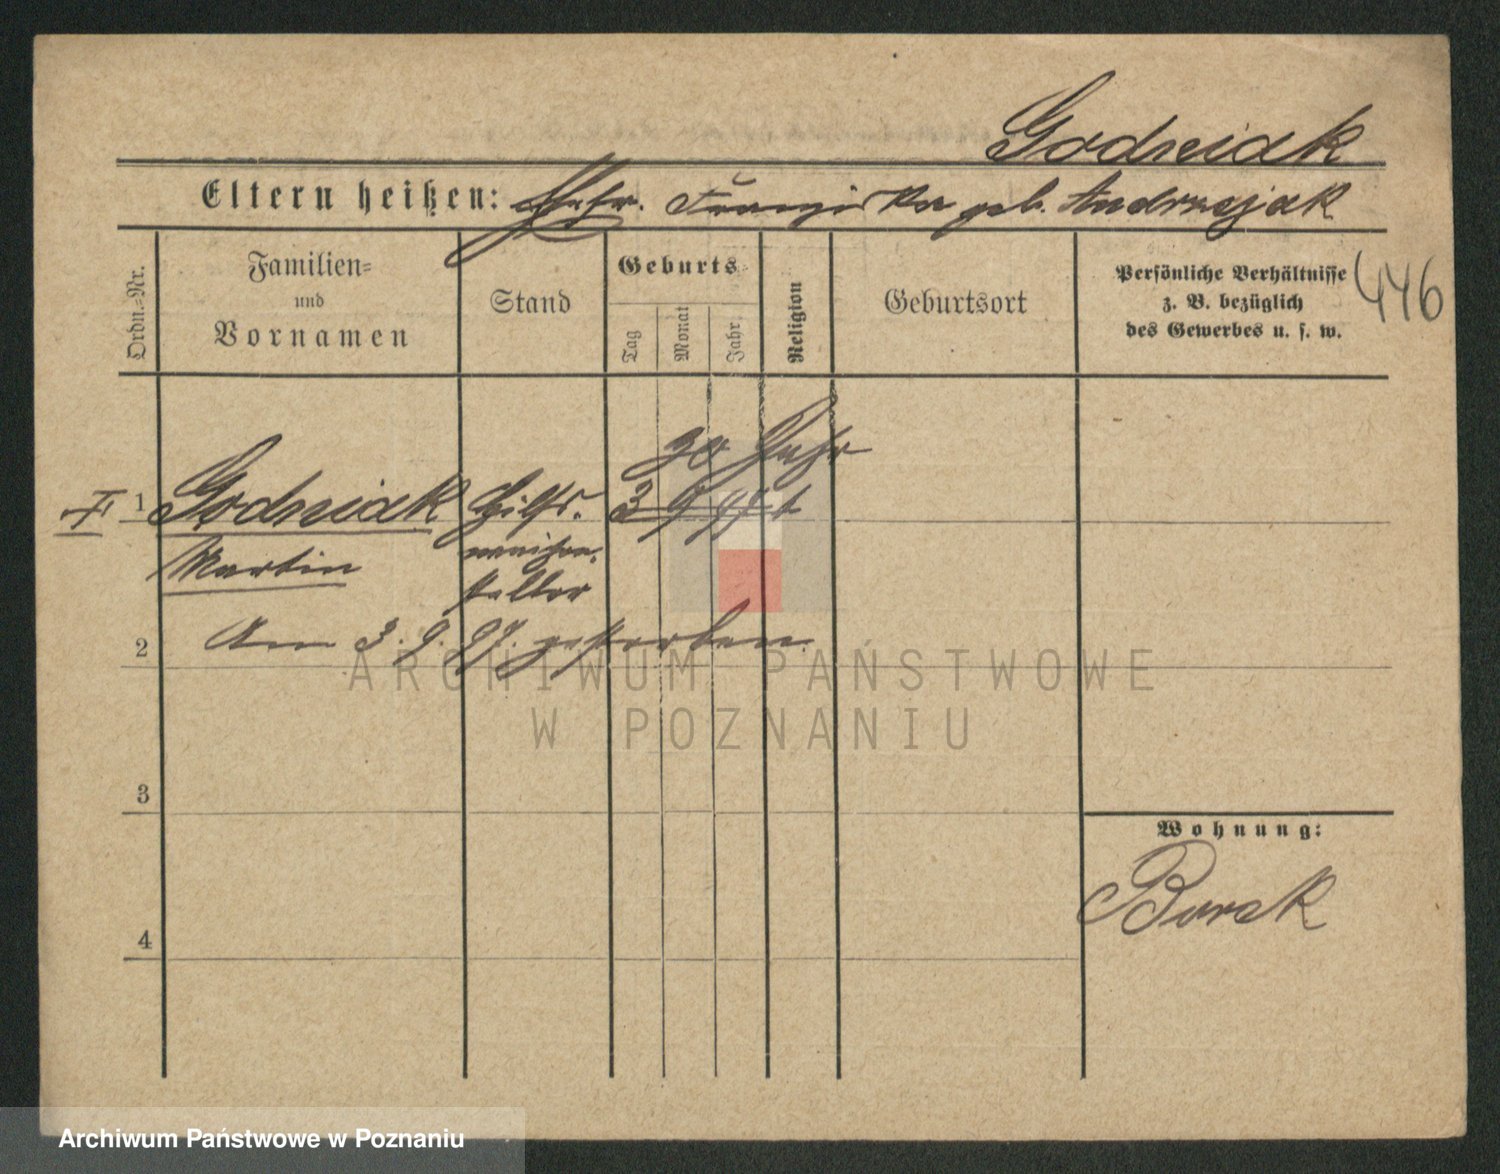 Godneiak
Eltern heißen: Ehefr. Franziska geb. Andrzejak
Ordn.=Nr.
Familien=
und
Vornamen
Stand
Geburts=
Tag
Monat
Jahr.
Religion
Geburtsort
Persönliche Verhältnisse
z. B. bezüglich
des Gewerbes u. s. w.
446
30 Jahr
1 Godneiak Hilfs. 3 9
Martin weichen.
steller
2 Am 3. 9. 97. gestorben.
ARCHIWUM PAŃSTWOWE
W POZNANIU
3
Wohnung:
Borek
4
Archiwum Państwowe w Poznaniu